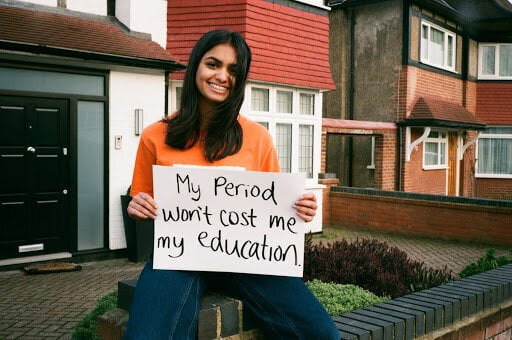 My Period
won't cost me
my education.